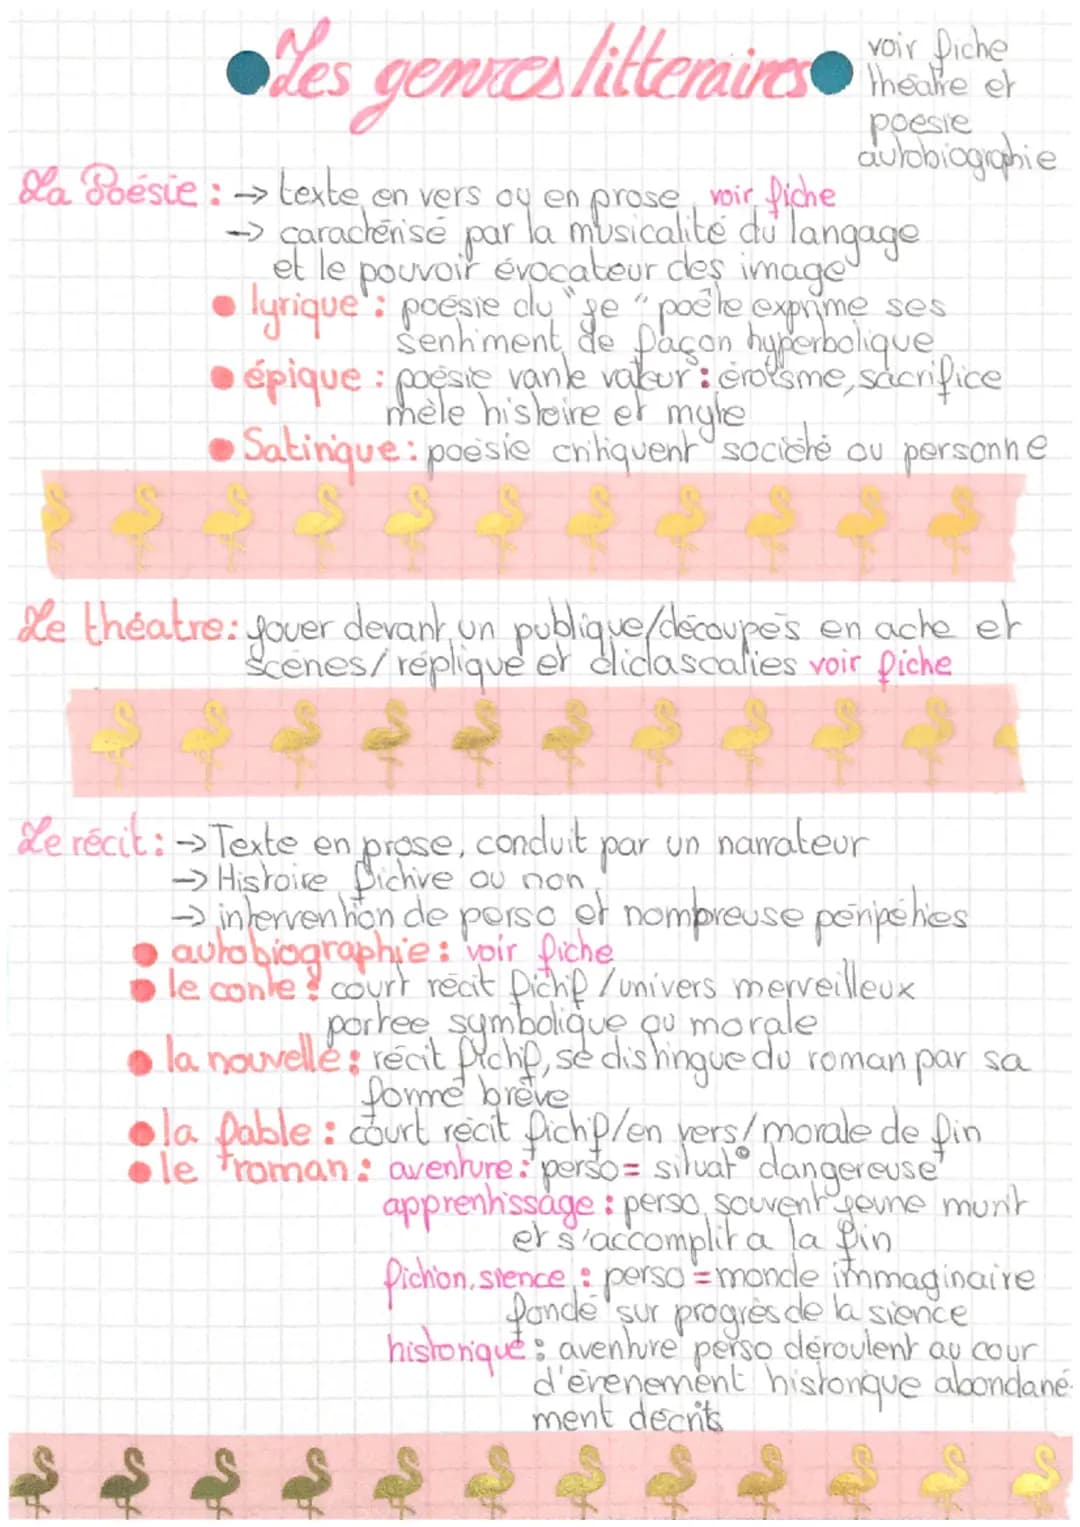 Les genres litteraires
voir fiche
théatre et
poesie
autobiographie
La Poésie : → texte en vers ou en prose voir fiche
→ caractérisé par la musicalité du langage
et le pouvoir évocateur des image
lyrique : poésie du "je" poète exprime ses
sentiment de façon hyperbolique
épique : poésie vante valeur : éroïsme, sacrifice
mèle histoire et myte
Satirique : poésie critiquent société ou personne
Le théatre : jouer devant un publique/découpés en acte et
scènes/ réplique et didascalies voir fiche
Le récit : → Texte en prose, conduit par un narrateur
→ Histoire fictive ou non
→ intervention de perso et nombreuse péripéties
autobiographie : voir fiche
le conte : court récit fictif / univers merveilleux
portee symbolique ou morale
la nouvelle : récit fictif, se distingue du roman par sa
forme brève
la fable : court récit fictif/en vers/ morale de fin
le roman : aventure : perso = situat° dangereuse
apprentissage : perso souvent jeune murit
et s'accomplit a la fin
fiction, sience : perso = monde immaginaire
fondé sur progrès de la sience
historique : aventure perso déroulent au cour
d'évenement historique abondané-
ment décrits